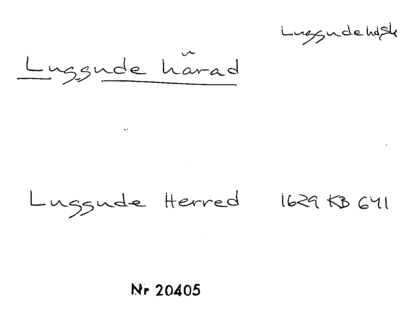 Luggude härad
Luggude Herred 1629 KB 641
Nr 20405